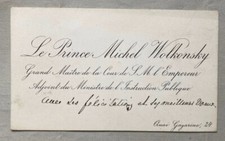 Le Prince Michel Wolkonsky
Grand Maître de la Cour de S. M. l'Empereur
Adjoint du Ministre de l'Instruction Publique
avec ses félicitations et ses meilleurs vœux.
20